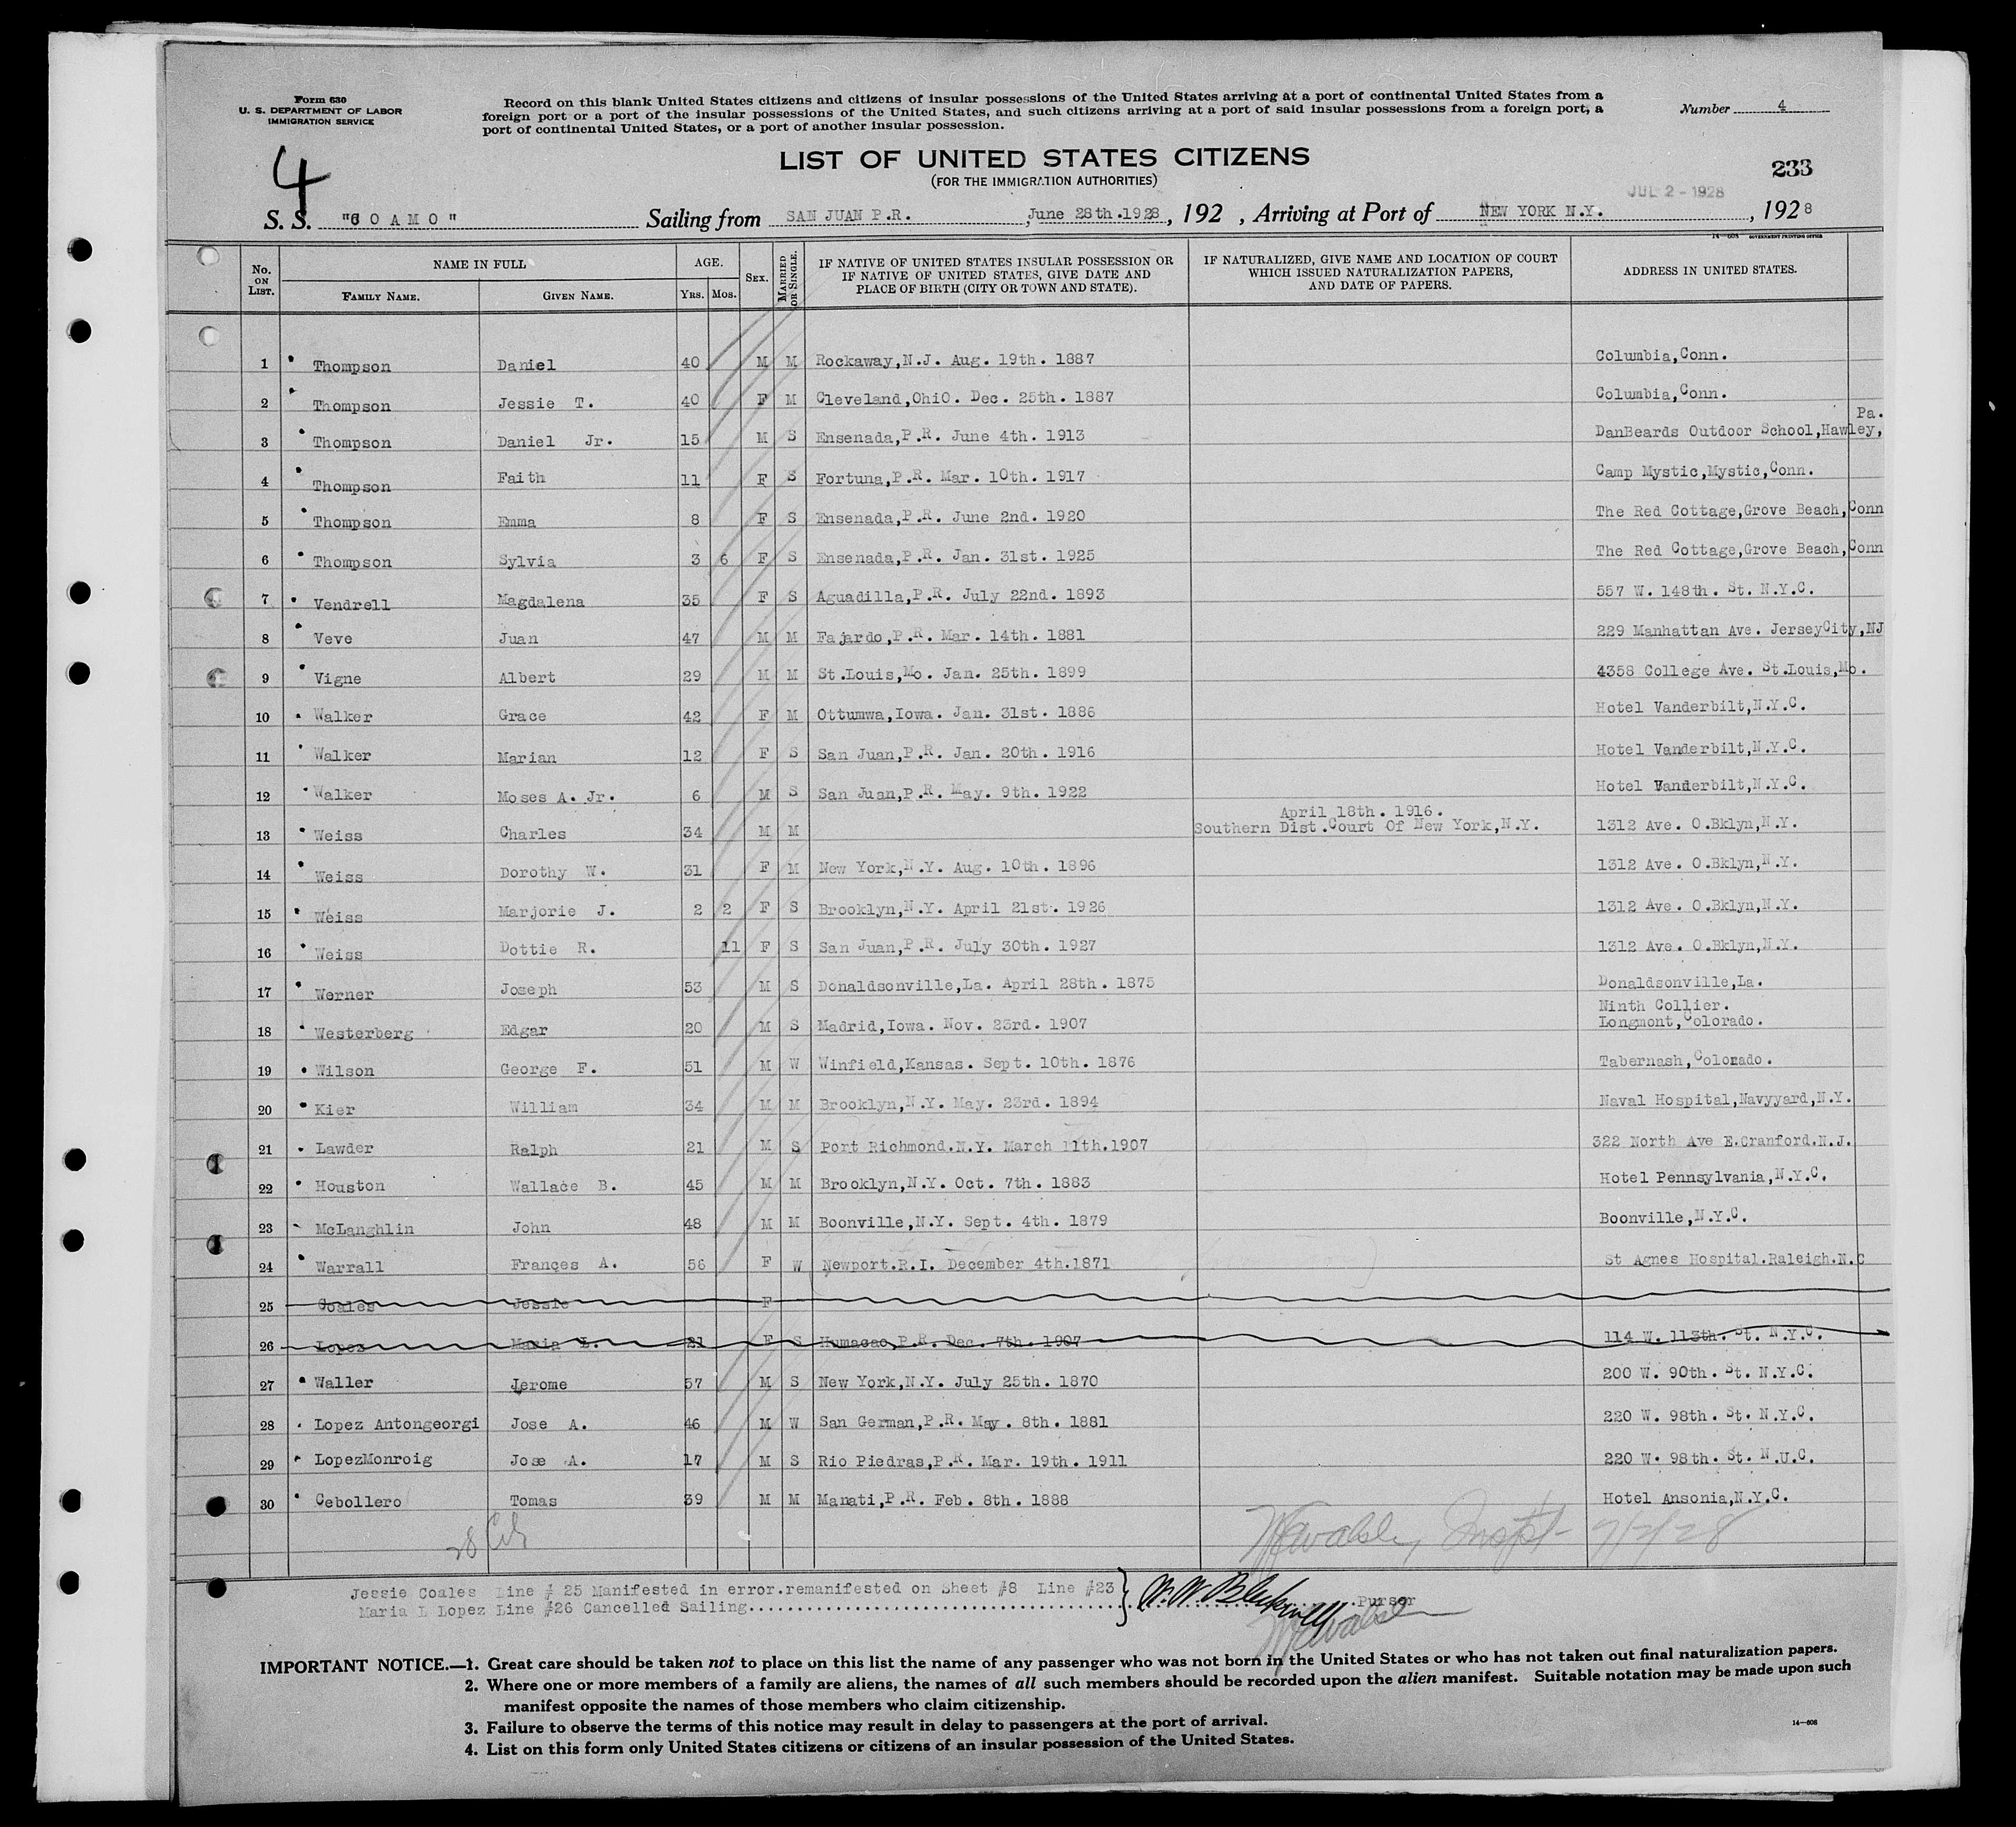 Form 630
U. S. DEPARTMENT OF LABOR
IMMIGRATION SERVICE
Record on this blank United States citizens and citizens of insular possessions of the United States arriving at a port of continental United States from a
foreign port or a port of the insular possessions of the United States, and such citizens arriving at a port of said insular possessions from a foreign port, a
port of continental United States, or a port of another insular possession.
Number 4
4
LIST OF UNITED STATES CITIZENS
(FOR THE IMMIGRATION AUTHORITIES)
233
JUL 2 - 1928
S. S. "COAMO" Sailing from SAN JUAN P.R. , June 28th.1928 , 192 , Arriving at Port of NEW YORK N.Y. , 1928
14—608 GOVERNMENT PRINTING OFFICE
No. ON LIST. NAME IN FULL FAMILY NAME. GIVEN NAME. AGE. YRS. MOS. SEX. MARRIED OR SINGLE. IF NATIVE OF UNITED STATES INSULAR POSSESSION OR IF NATIVE OF UNITED STATES, GIVE DATE AND PLACE OF BIRTH (CITY OR TOWN AND STATE). IF NATURALIZED, GIVE NAME AND LOCATION OF COURT WHICH ISSUED NATURALIZATION PAPERS, AND DATE OF PAPERS. ADDRESS IN UNITED STATES.
1 Thompson Daniel 40 M M Rockaway,N.J. Aug. 19th. 1887 Columbia,Conn.
2 Thompson Jessie T. 40 F M Cleveland,OhiO. Dec. 25th. 1887 Columbia,Conn.
3 Thompson Daniel Jr. 15 M S Ensenada,P.R. June 4th. 1913 DanBeards Outdoor School,Hawley, Pa.
4 Thompson Faith 11 F S Fortuna,P.R. Mar. 10th. 1917 Camp Mystic,Mystic,Conn.
5 Thompson Emma 8 F S Ensenada,P.R. June 2nd. 1920 The Red Cottage,Grove Beach,Conn
6 Thompson Sylvia 3 6 F S Ensenada,P.R. Jan. 31st. 1925 The Red Cottage,Grove Beach,Conn
7 Vendrell Magdalena 35 F S Aguadilla,P.R. July 22nd. 1893 557 W. 148th. St. N.Y.C.
8 Veve Juan 47 M M Fajardo,P.R. Mar. 14th. 1881 229 Manhattan Ave. JerseyCity,NJ
9 Vigne Albert 29 M M St.Louis,Mo. Jan. 25th. 1899 4358 College Ave. St.Louis,Mo.
10 Walker Grace 42 F M Ottumwa,Iowa. Jan. 31st. 1886 Hotel Vanderbilt,N.Y.C.
11 Walker Marian 12 F S San Juan,P.R. Jan. 20th. 1916 Hotel Vanderbilt,N.Y.C.
12 Walker Moses A. Jr. 6 M S San Juan,P.R. May. 9th. 1922 Hotel Vanderbilt,N.Y.C.
April 18th. 1916.
13 Weiss Charles 34 M M Southern Dist.Court Of New York,N.Y. 1312 Ave. O.Bklyn,N.Y.
14 Weiss Dorothy W. 31 F M New York,N.Y. Aug. 10th. 1896 1312 Ave. O.Bklyn,N.Y.
15 Weiss Marjorie J. 2 2 F S Brooklyn,N.Y. April 21st. 1926 1312 Ave. O.Bklyn,N.Y.
16 Weiss Dottie R. 11 F S San Juan,P.R. July 30th. 1927 1312 Ave. O.Bklyn,N.Y.
17 Werner Joseph 53 M S Donaldsonville,La. April 28th. 1875 Donaldsonville,La.
Ninth Collier.
18 Westerberg Edgar 20 M S Madrid,Iowa. Nov. 23rd. 1907 Longmont,Colorado.
19 Wilson George F. 51 M W Winfield,Kansas. Sept. 10th. 1876 Tabernash,Colorado.
20 Kier William 34 M M Brooklyn,N.Y. May. 23rd. 1894 Naval Hospital,Navyyard,N.Y.
21 Lawder Ralph 21 M S Port Richmond.N.Y. March 11th.1907 322 North Ave E.Cranford.N.J.
22 Houston Wallace B. 45 M M Brooklyn,N.Y. Oct. 7th. 1883 Hotel Pennsylvania,N.Y.C.
23 McLanghlin John 48 M M Boonville,N.Y. Sept. 4th. 1879 Boonville,N.Y.C.
24 Warrall Frances A. 56 F W Newport.R.I. December 4th.1871 St Agnes Hospital.Raleigh.N.C
25 Coales Jessie F
26 Lopez Maria L. 21 F S Humacao,P.R. Dec. 7th. 1907 114 W. 113th. St. N.Y.C.
27 Waller Jerome 57 M S New York,N.Y. July 25th. 1870 200 W. 90th. St. N.Y.C.
28 Lopez Antongeorgi Jose A. 46 M W San German,P.R. May. 8th. 1881 220 W. 98th. St. N.Y.C.
29 LopezMonroig Jose A. 17 M S Rio Piedras,P.R. Mar. 19th. 1911 220 W. 98th. St. N.U.C.
30 Cebollero Tomas 39 M M Manati,P.R. Feb. 8th. 1888 Hotel Ansonia,N.Y.C.
28 Inspt 7/2/28
Jessie Coales Line # 25 Manifested in error.remanifested on Sheet #8 Line #23
Maria L Lopez Line #26 Cancelled Sailing.......................................... Purser
IMPORTANT NOTICE.—1. Great care should be taken not to place on this list the name of any passenger who was not born in the United States or who has not taken out final naturalization papers.
2. Where one or more members of a family are aliens, the names of all such members should be recorded upon the alien manifest. Suitable notation may be made upon such
manifest opposite the names of those members who claim citizenship.
3. Failure to observe the terms of this notice may result in delay to passengers at the port of arrival.
4. List on this form only United States citizens or citizens of an insular possession of the United States.
14—608